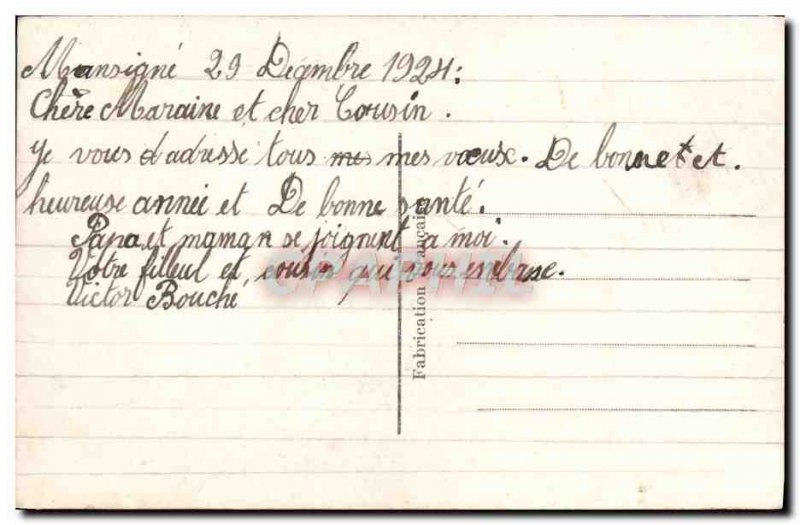 Mansigné 29 Décembre 1924:
Chère Maraine et cher Cousin.
Je vous d adresse tous mes mes vœux. De bonne et et.
heureuse année et De bonne santé.
Papa et maman se joignent a moi.
Votre filleul et cousin qui vous embrase.
Victor Bouché
Fabrication Française
CPAPHIL